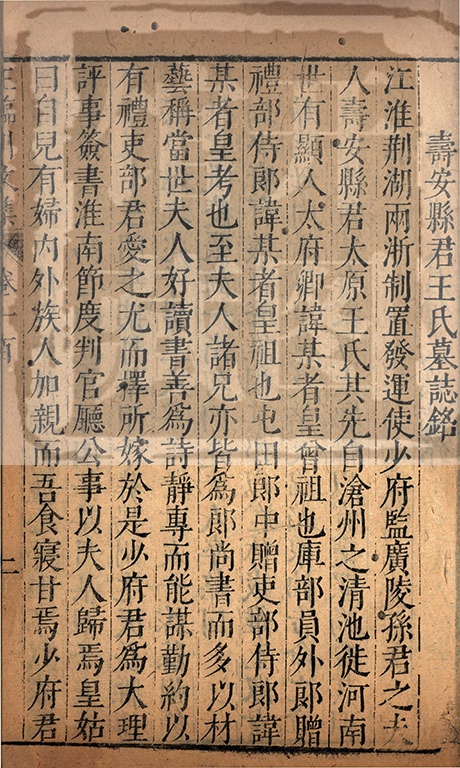 壽安縣君王氏墓誌銘
江淮荆湖兩浙制置發運使少府監廣陵孫君之夫
人壽安縣君太原王氏其先自滄州之清池徙河南
世有顯人太府卿諱某者皇曾祖也庫部員外郎贈
禮部侍郎諱某者皇祖也屯田郎中贈吏部侍郎諱
某者皇考也至夫人諸兄亦皆爲郎尚書而多以材
藝稱當世夫人好讀書善爲詩靜專而能謀勤約以
有禮吏部君愛之尤而擇所嫁於是少府君爲大理
評事簽書淮南節度判官廳公事以夫人歸焉皇姑
曰自兒有婦内外族人加親而吾食寢甘焉少府君
王臨川文集 卷一百 二